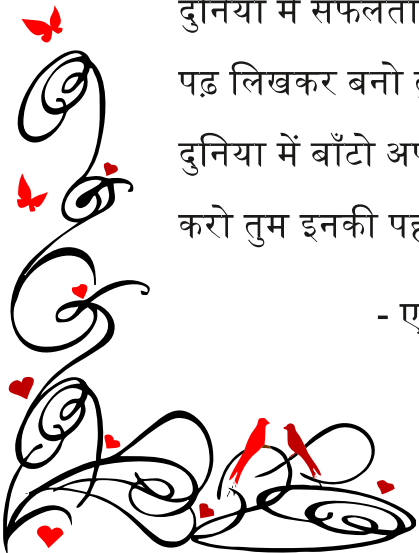 दुनिया में सफलता
पढ़ लिखकर बनो
दुनिया में बाँटो
करो तुम इनकी
-